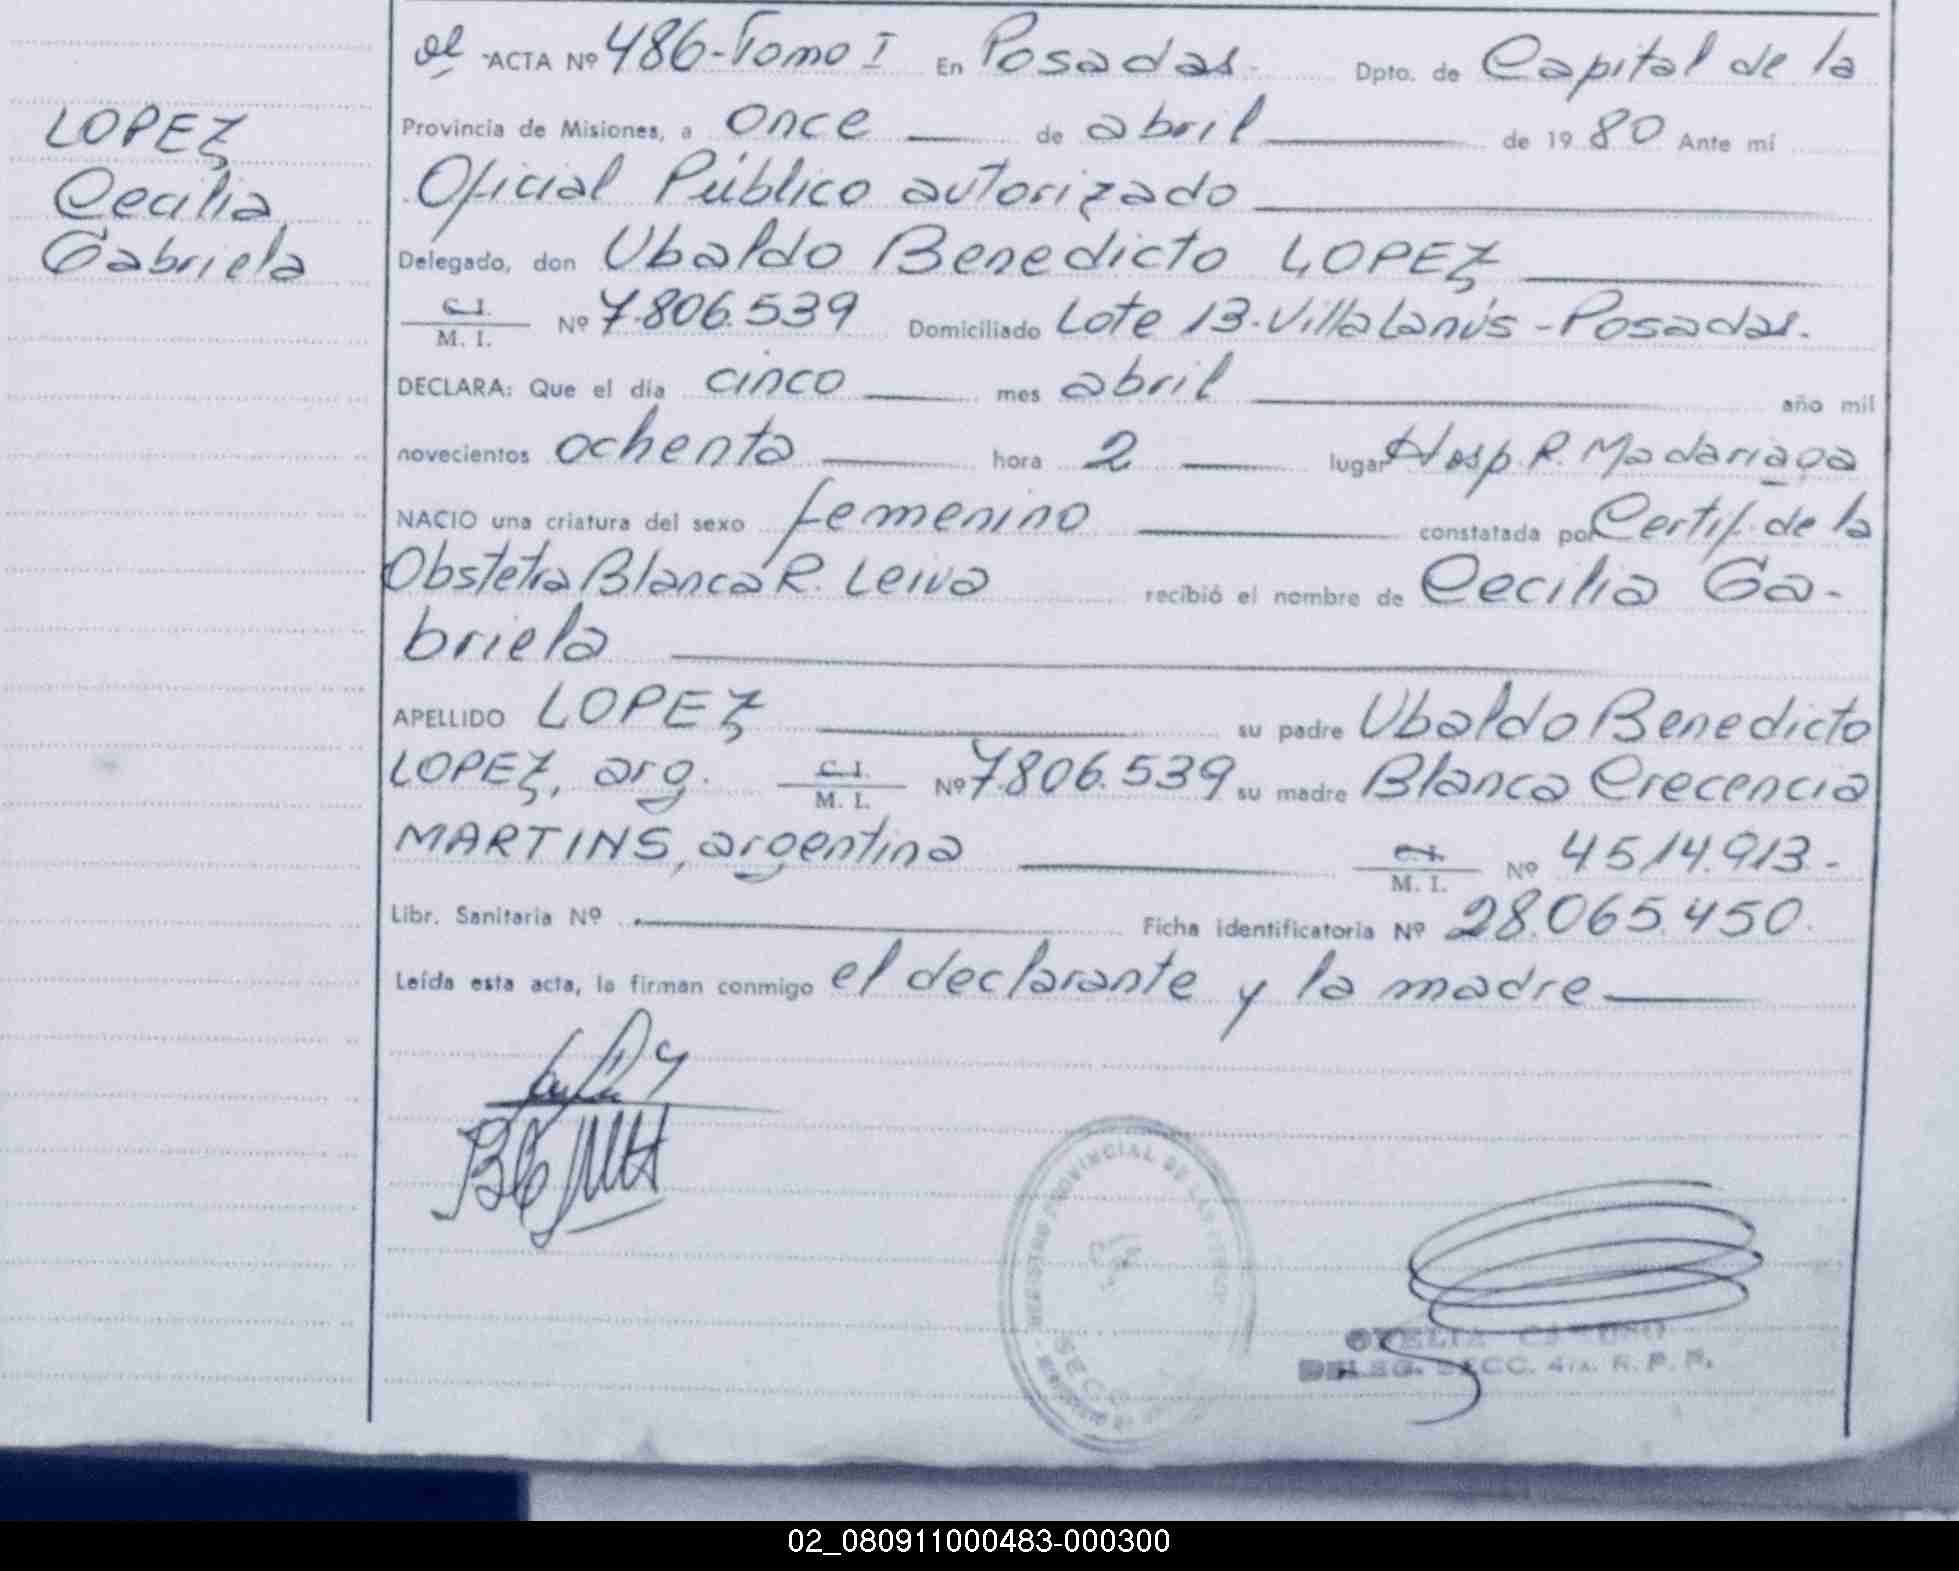 LOPEZ
Cecilia
Gabriela
ACTA Nº 486-Tomo I En Posadas. Dpto. de Capital de la
Provincia de Misiones, a once de abril de 1980 Ante mí
Oficial Público autorizado
Delegado, don Ubaldo Benedicto LOPEZ
C.I.
M. I. Nº 7.806.539 Domiciliado Lote 13-Villa Lanús - Posadas.
DECLARA: Que el día cinco mes abril año mil
novecientos ochenta hora 2 lugar Hosp. R. Madariaga
NACIO una criatura del sexo femenino constatada por Certif. de la
Obstetra Blanca R. Leiva recibió el nombre de Cecilia Ga-
briela
APELLIDO LOPEZ su padre Ubaldo Benedicto
LOPEZ, arg. C.I.
M. I. Nº 7.806.539 su madre Blanca Crecencia
MARTINS, argentina C.I.
M. I. Nº 4514.913.-
Libr. Sanitaria Nº Ficha identificatoria Nº 28.065.450.
Leída esta acta, la firman conmigo el declarante y la madre
REGISTRO PROVINCIAL DE LAS
DELEG. SECC. 4ta. R. P. P.
02_080911000483-000300